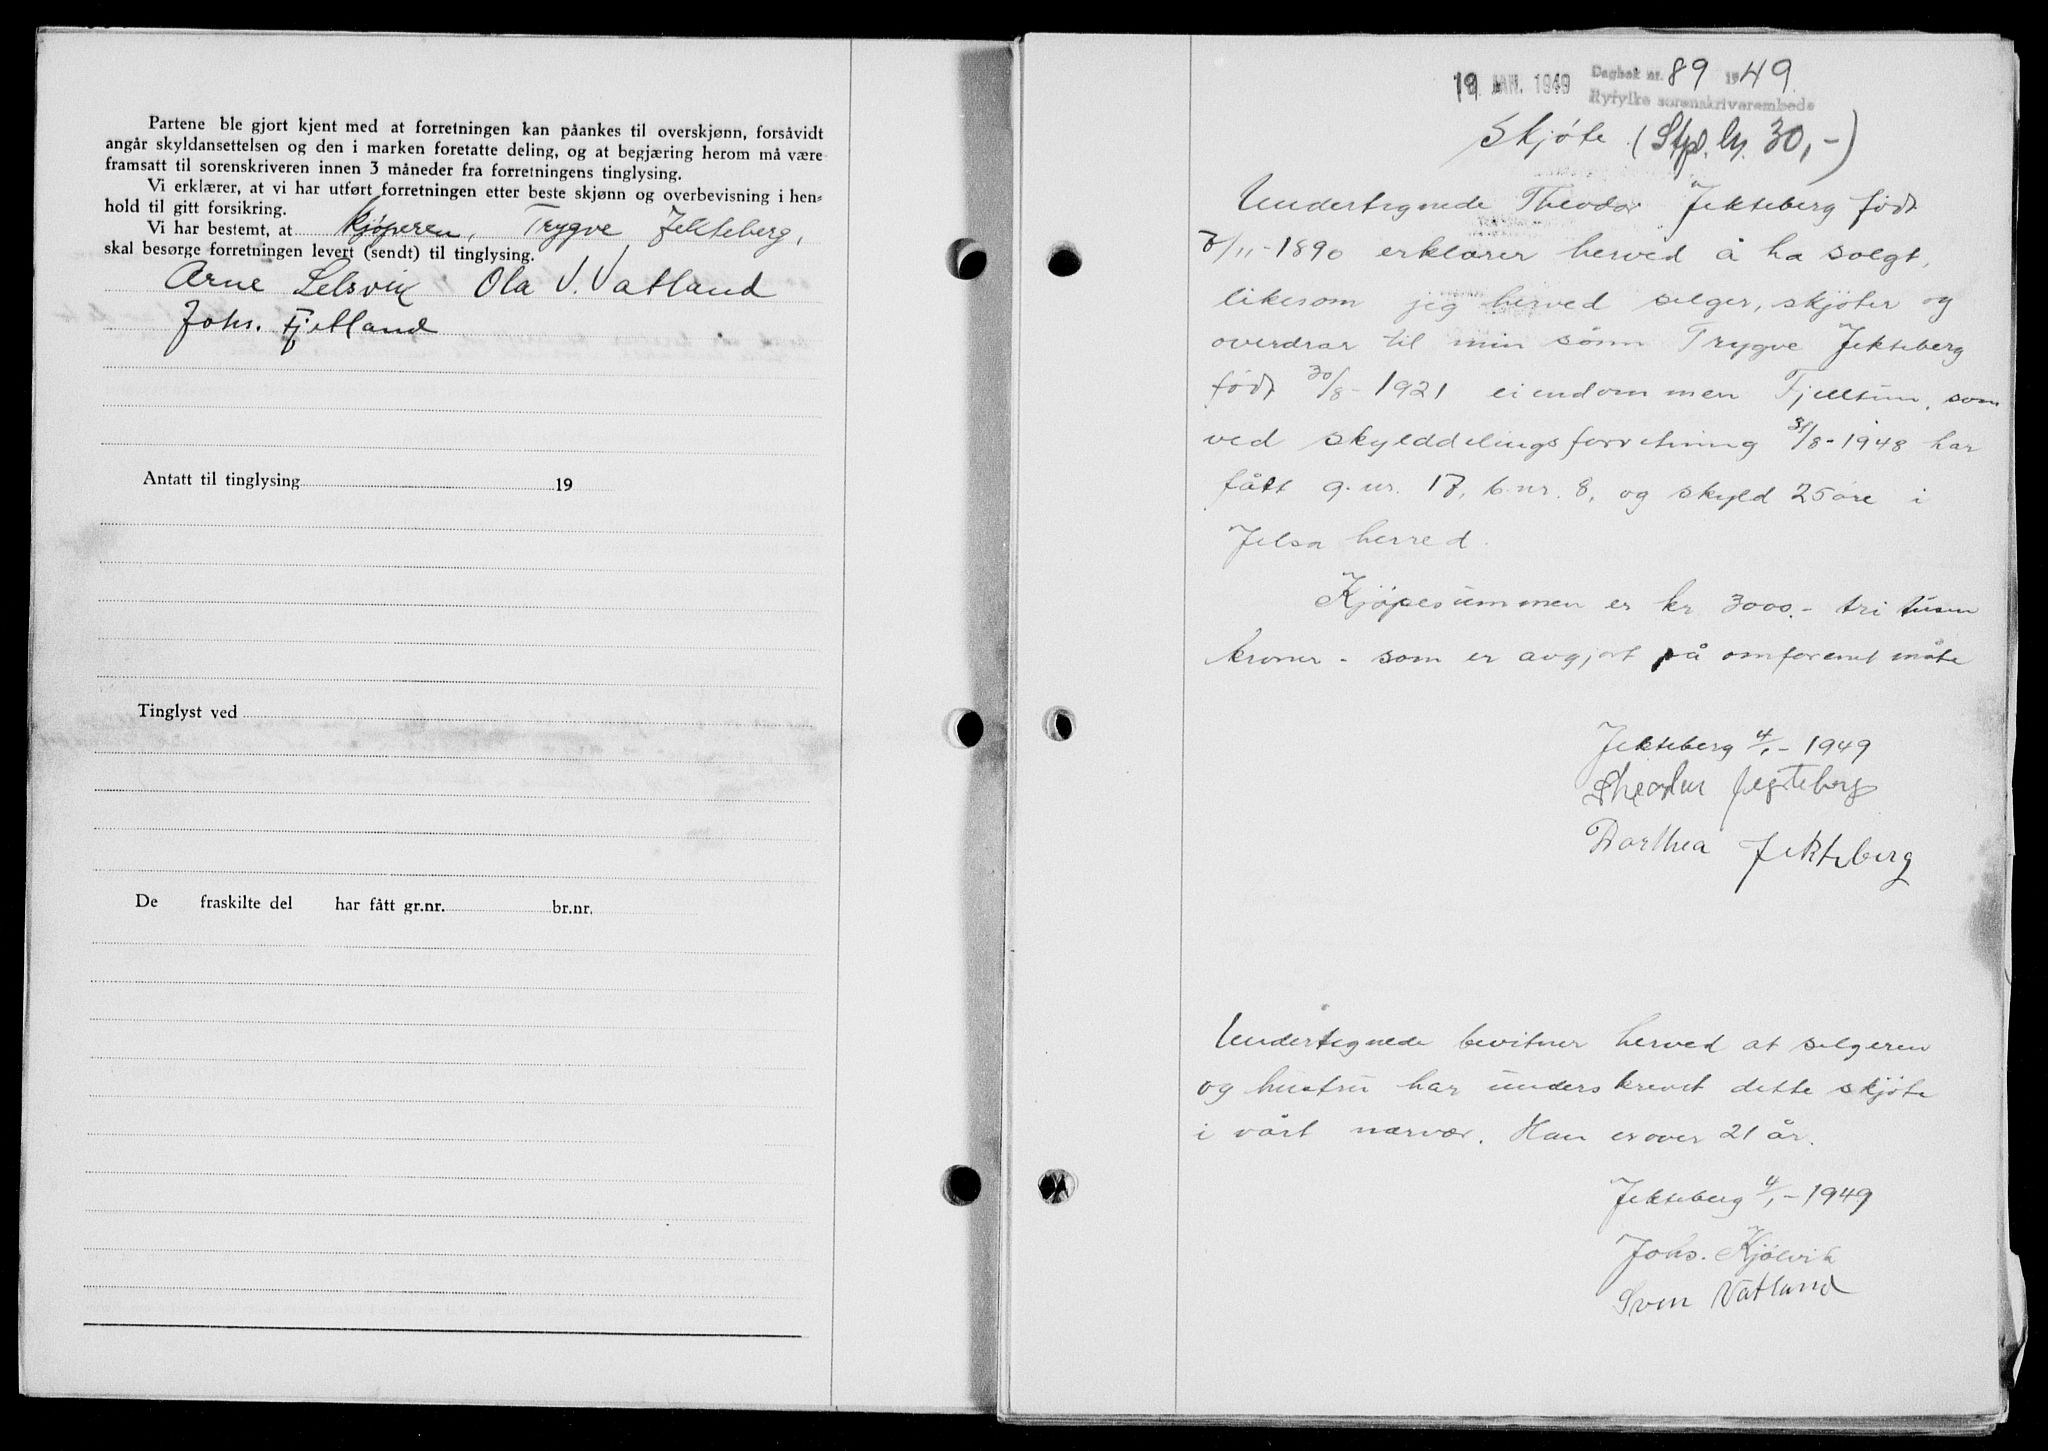 Partene ble gjort kjent med at forretningen kan påankes til overskjønn, forsåvidt
angår skyldansettelsen og den i marken foretatte deling, og at begjæring herom må være
framsatt til sorenskriveren innen 3 måneder fra forretningens tinglysing.
Vi erklærer, at vi har utført forretningen etter beste skjønn og overbevisning i hen-
hold til gitt forsikring.
Vi har bestemt, at kjøperen, Trygve Jekteberg,
skal besørge forretningen levert (sendt) til tinglysing.
Arne Selsvik Ola V. Vatland
Johs. Fjetland
Antatt til tinglysing 19
Tinglyst ved
De fraskilte del har fått gr.nr. br.nr.
19 JAN. 1949 Dagbok nr. 89 1949.
Ryfylke sorenskriverembede
Skjøte (Stpl. kr. 30,-)
Undertegnede Theodor Jekteberg født
7/11-1890 erklærer herved å ha solgt,
likesom jeg herved selger, skjøter og
overdrar til min sønn Trygve Jekteberg
født 30/8-1921 eiendommen Fjelltun, som
ved skylddelingsforretning 31/8-1948 har
fått g.nr. 17, b.nr. 8, og skyld 25 øre i
Jelsa herred.
Kjøpesummen er kr 3000.- tri tusen
kroner - som er avgjort på omforenet måte
Jekteberg 4/1-1949
Theodor Jegteberg
Dorthea Jekteberg
Undertegnede bevitner herved at selgeren
og hustru har underskrevet dette skjøte
i vårt nærvær. Han er over 21 år.
Jekteberg 4/1-1949
Johs. Kjølvik
Sven Vatland